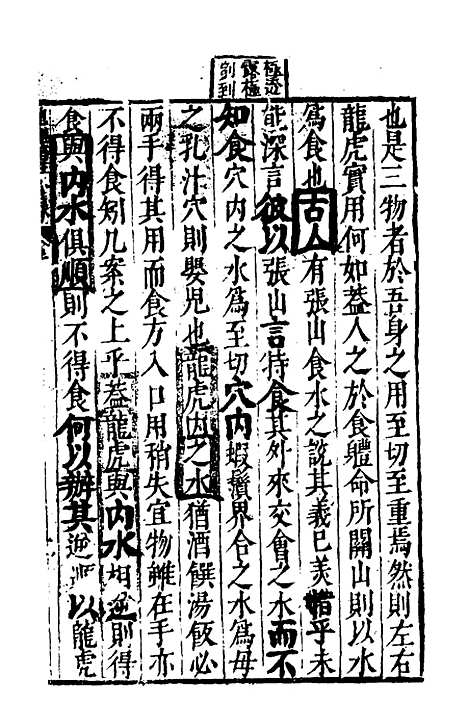 極這
露極
刻到
也是三物者於吾身之用至切至重焉然則左右
龍虎實用何如蓋人之於食軆命所關山則以水
爲食也古人有張山食水之說其義已美惜乎未
能深言彼以張山言特食其外來交會之水而不
知食穴内之水爲至切穴内蝦鬚界合之水爲母
之乳汁穴則嬰兒也龍虎内之水猶酒饌湯飯必
兩手得其用而食方入口用稍失宜物雖在手亦
不得食矧几案之上乎蓋龍虎與内水相逆則得
食與内水俱順則不得食何以辦其逆順以龍虎